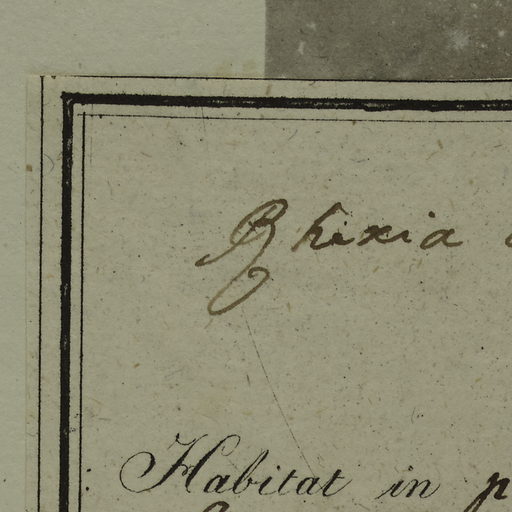 Rhexia
Habitat in